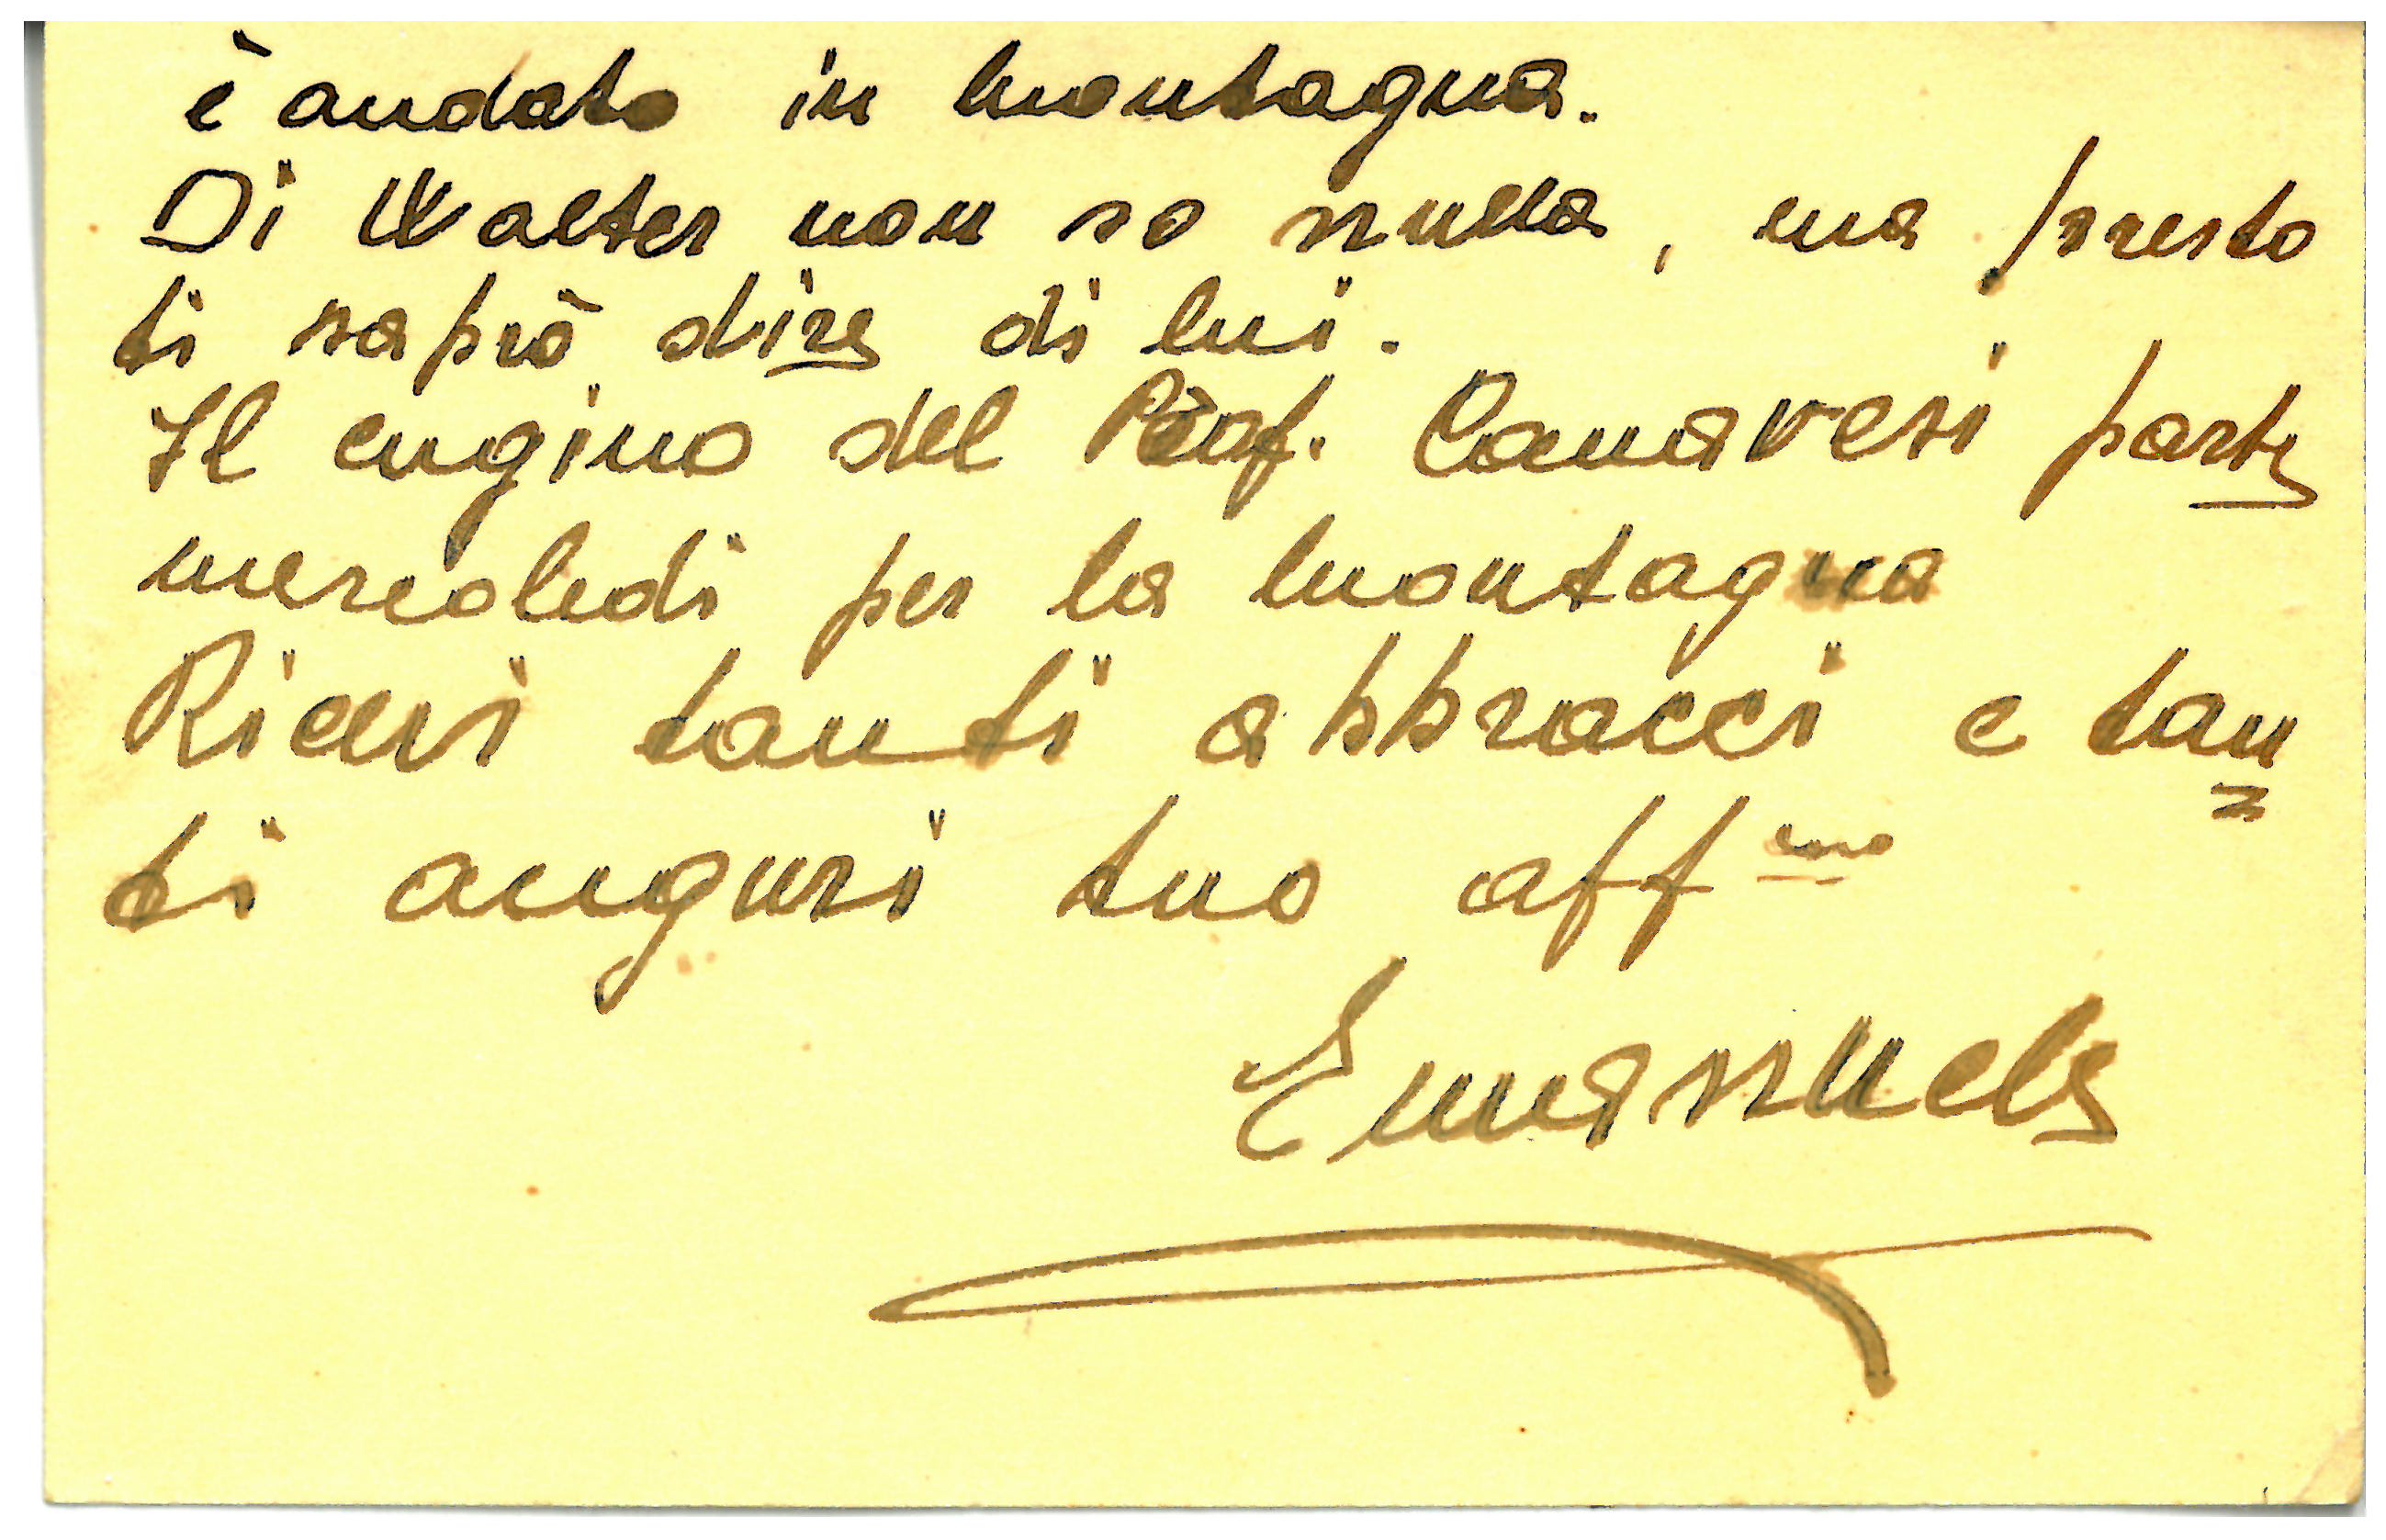 è andato in montagna.
Di Walter non so nulla, ma presto
ti saprò dire di lui.
Il cugino del Prof. Canavesi parte
mercoledì per la montagna
Ricevi tanti abbracci e tan=
ti auguri tuo aff.mo
Emanuele